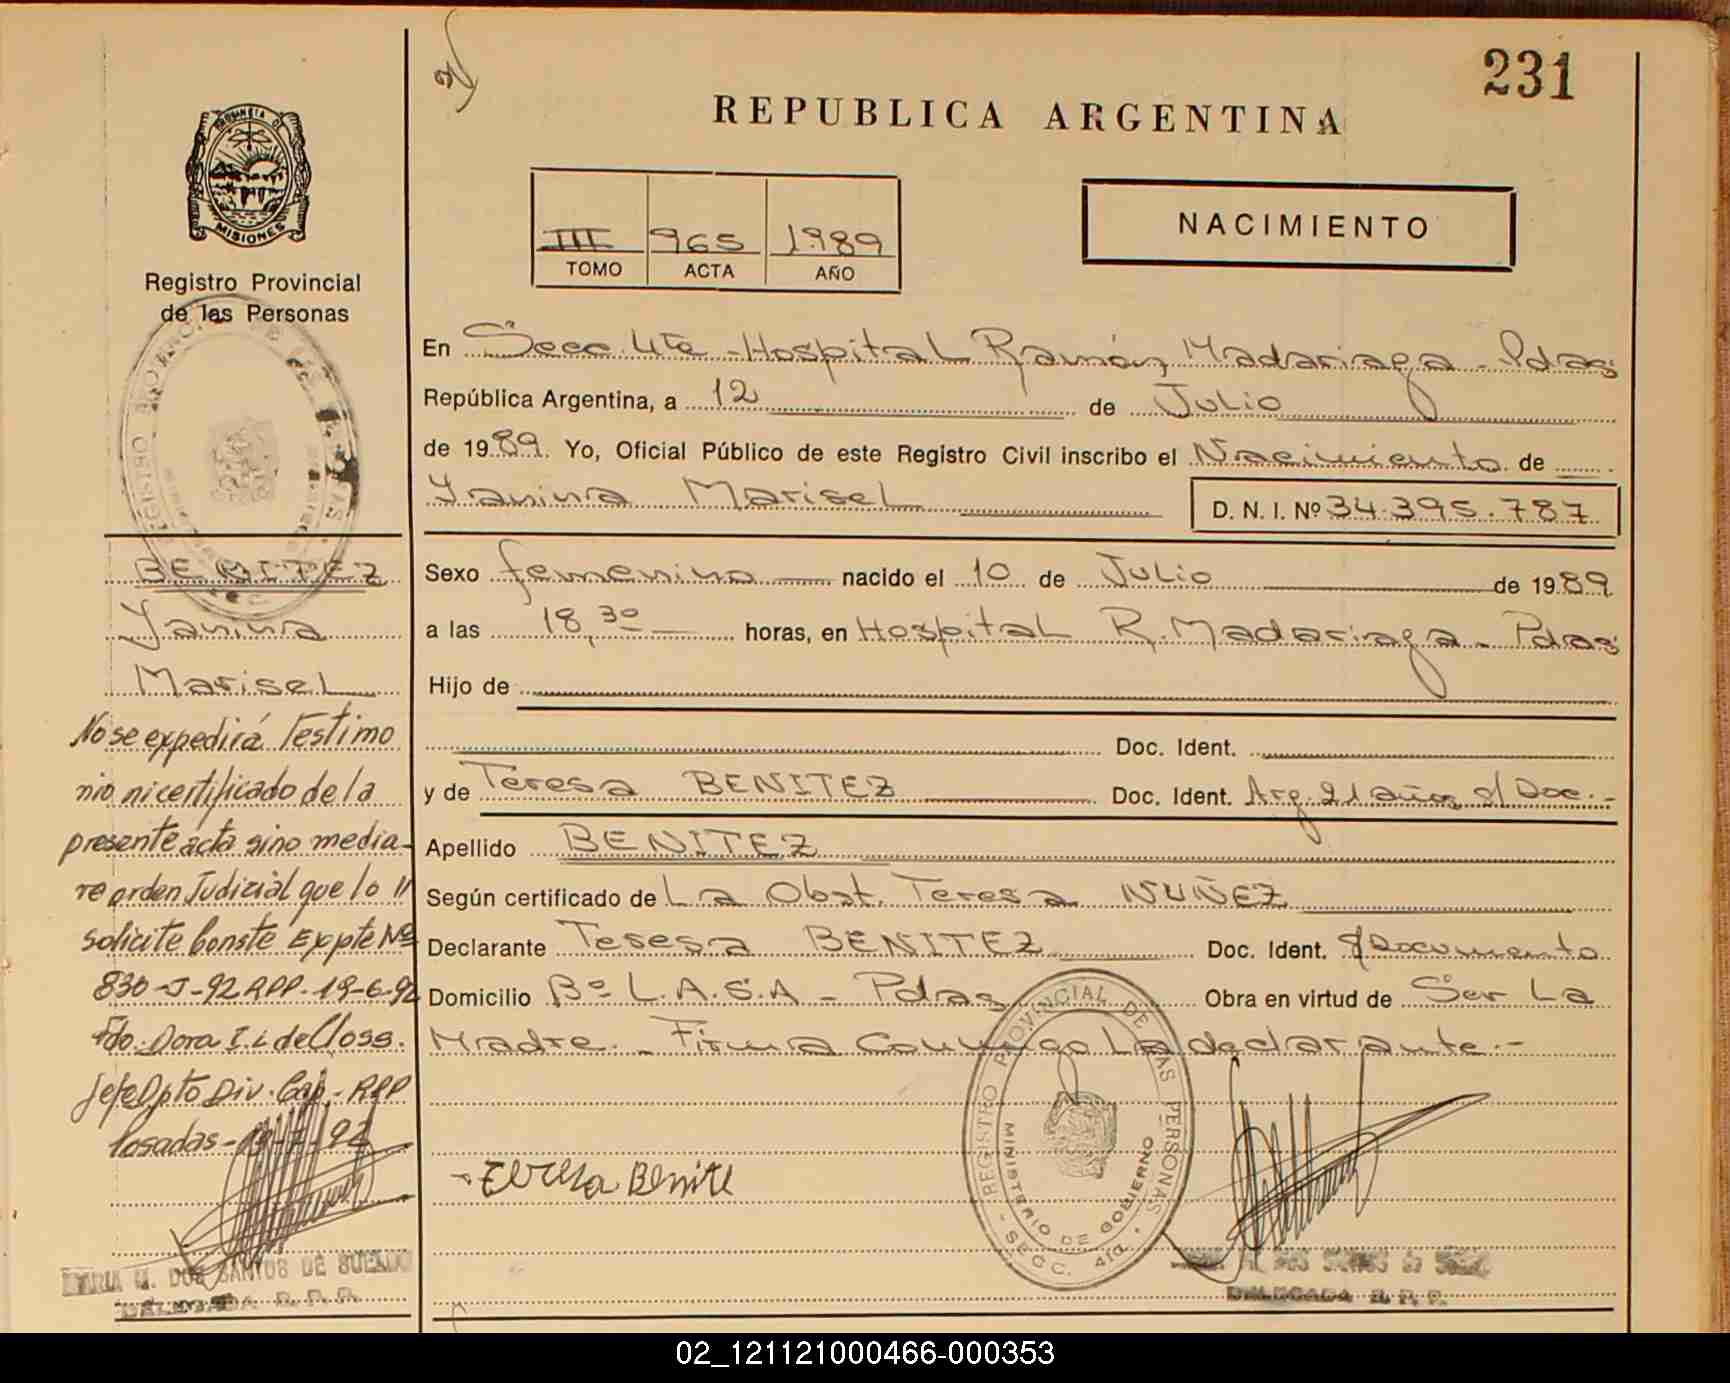 231
REPUBLICA ARGENTINA
III 965 1989
TOMO ACTA AÑO
NACIMIENTO
MISIONES
Registro Provincial
de las Personas
En Secc. 4ta - Hospital Ramón Madariaga - Pdas
República Argentina, a 12 de Julio
de 1989. Yo, Oficial Público de este Registro Civil inscribo el Nacimiento de
Yanina Marisel
D. N. I. Nº 34.395.787
Sexo femenino nacido el 10 de Julio de 1989
a las 18,30 horas, en Hospital R. Madariaga - Pdas
Hijo de
Doc. Ident.
y de Teresa BENITEZ Doc. Ident. Arg. 21 años s/ Doc.-
Apellido BENITEZ
Según certificado de La Obst. Teresa NUÑEZ
Declarante Teresa BENITEZ Doc. Ident. s/Documento
Domicilio Bº L.A.S.A - Pdas Obra en virtud de Ser La
Madre. - Firma Conmigo La declarante.-
Teresa Benite
REGISTRO PROVINCIAL DE LAS PERSONAS
MINISTERIO DE GOBIERNO
- SECC. 4ta. -
DELEGADA R. P. P.
BENITEZ
Yanina
Marisel
No se expedirá Testimo
nio ni certificado de la
presente acta sino media-
re orden Judicial que lo
solicite Conste Expte Nº
830-J-92 RPP-19-6-92
Fdo. Dora I. L de Closs.
Jefe Dpto Div. Cap.- RPP
Posadas - 7-92
MARIA M. DOS SANTOS DE SUELDO
DELEGADA R. P. P.
02_121121000466-000353